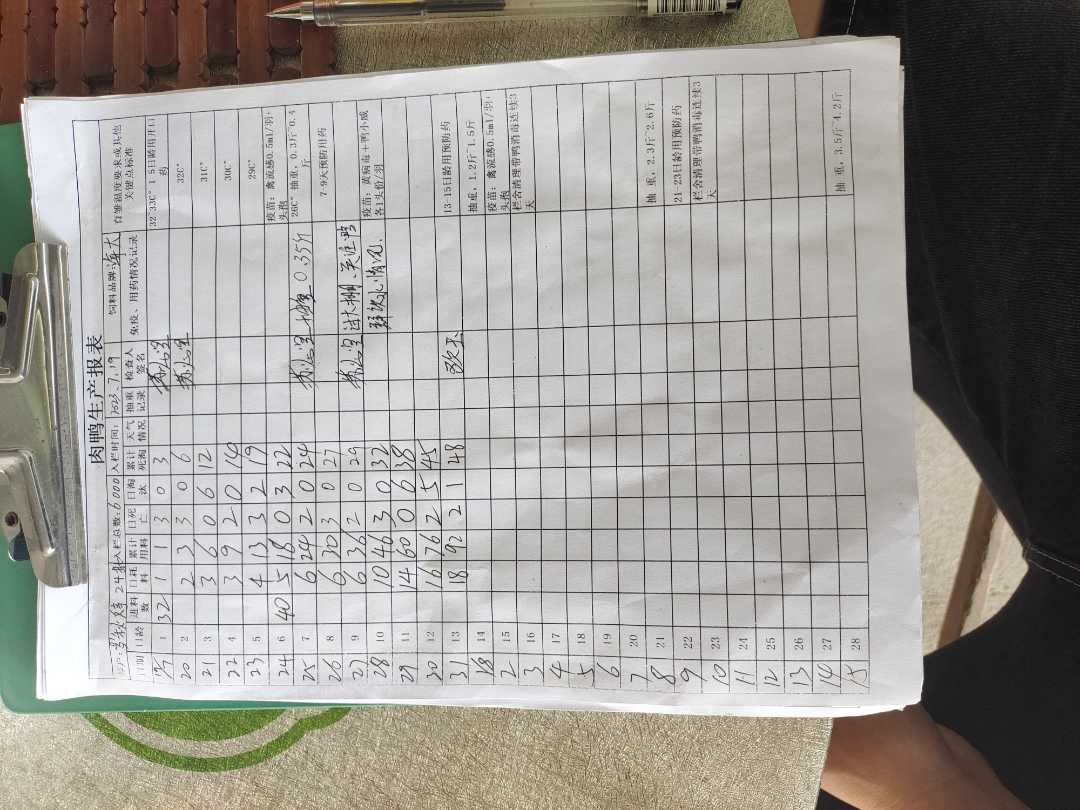 肉鸭生产报表
户: 24 入栏总数: 6000 入栏时间: 2023.7.19 饲料品牌: 海大
日期 日龄 进料数 日耗料 累计用料 日死亡 日淘汰 累计死淘 天气情况 抽重记录 检查人签名 免疫、用药情况记录 育雏温度要求或其他关键点标准
19 1 32 1 1 3 0 3 32~33C° 1-5日龄用开口药
20 2 2 3 3 0 6 32C°
21 3 3 6 0 6 12 31C°
22 4 3 9 2 0 14 30C°
23 5 4 13 3 2 19 29C°
24 6 40 5 18 0 3 22 疫苗: 禽流感0.5ml/羽+头孢
25 7 6 24 2 0 24 抽重 0.35斤 26C° 抽重, 0.3斤~0.4斤
26 8 6 30 3 0 27 7-9天预防用药
27 9 6 36 2 0 29 疫苗: 黄病毒+鸭小威各1头份/羽
28 10 10 46 3 0 32
29 11 14 60 0 6 38
30 12 16 76 2 5 45 13-15日龄用预防药
31 13 18 92 2 1 48 抽重, 1.2斤~1.5斤
14 疫苗: 禽流感0.5ml/羽+头孢
2 15 栏舍清理带鸭消毒连续3天
3 16
4 17
5 18
6 19
7 20 抽重, 2.3斤~2.6斤
8 21 21-23日龄用预防药
9 22 栏舍清理带鸭消毒连续3天
10 23
11 24
12 25
13 26
14 27 抽重, 3.5斤~4.2斤
15 28